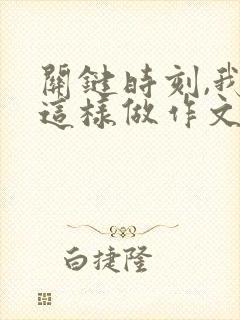 關鍵時刻,我
這樣做作文
白捷隆